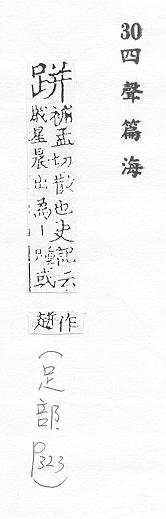 30四聲篇海
跰
補孟切散也史記云
賊星晨出為丨踵或
作
(足部 P323)